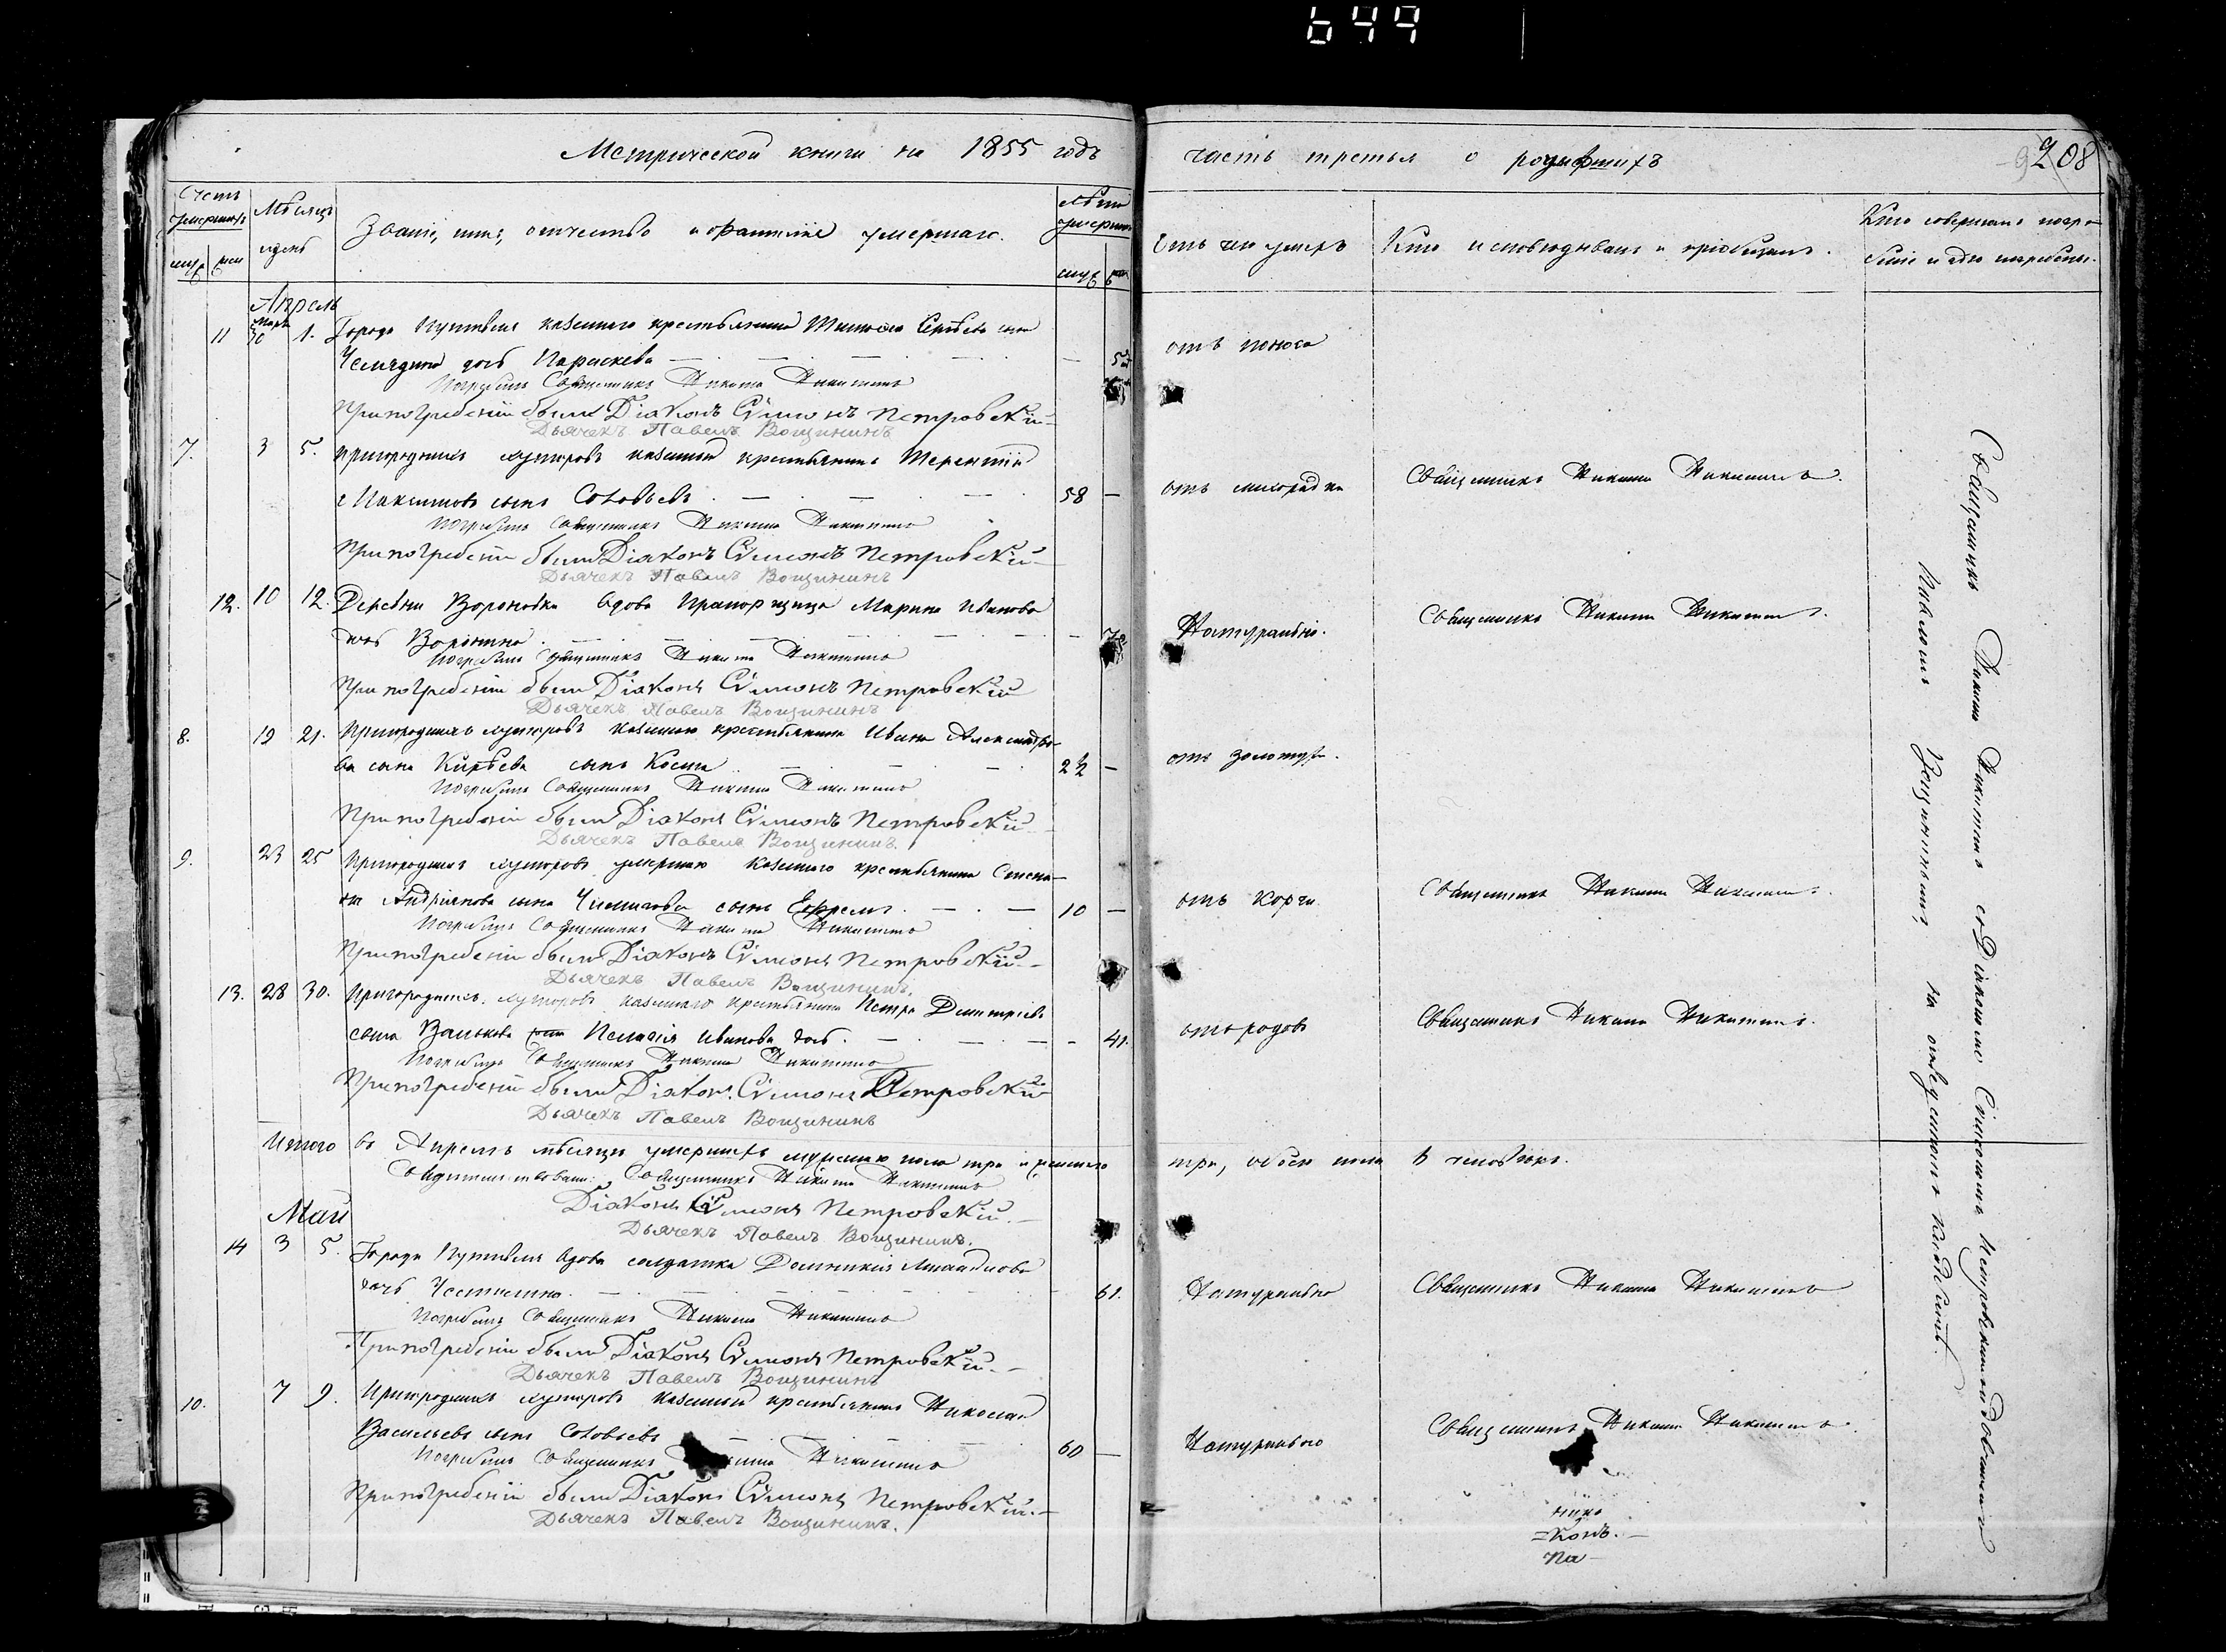 644
Метрической книги на 1855 годъ
часть третья о
208
Счетъ умершихъ
Мѣсяцъ и день
Званіе, имя, отчество и фамилія умершаго.
Лѣта умершаго
Отъ чего умеръ
Кто исповѣдывалъ и пріобщалъ.
Кто совершалъ погребеніе и гдѣ погребены.
Апрель
11 Марта 30 1. Города Путивля казеннаго крестьянина сына
дочь Параскева
отъ поноса
Погребалъ Священникъ Никита Никитинъ
При погребеніи были Діаконъ Сѵмонъ Петровскій
Дьячекъ Павелъ Вощининъ
7. 3 5. Пригородныхъ хуторовъ казенный крестьянинъ Терентій
Максимовъ сынъ Соловьевъ 58 —
отъ лихорадки
Священникъ Никита Никитинъ.
Погребалъ Священникъ Никита Никитинъ
При погребеніи были Діаконъ Сѵмонъ Петровскій
Дьячекъ Павелъ Вощининъ
12. 10 12. Деревни Вороновки вдова Прапорщица Марина Иванова
дочь Воронина
Натурально.
Священникъ Никита Никитинъ.
Погребалъ Священникъ Никита Никитинъ
При погребеніи были Діаконъ Сѵмонъ Петровскій
Дьячекъ Павелъ Вощининъ
8. 19 21. Пригородныхъ хуторовъ казеннаго крестьянина Ивана Александро-
ва сына Кирѣева сынъ Косма 2½ —
отъ золотухи.
Погребалъ Священникъ Никита Никитинъ
При погребеніи были Діаконъ Сѵмонъ Петровскій
Дьячекъ Павелъ Вощининъ.
9. 23 25 Пригородныхъ хуторовъ умершаго казеннаго крестьянина Степа-
на Андріянова сына сынъ Ефремъ. 10 —
отъ корчи.
Священникъ Никита Никитинъ.
Погребалъ Священникъ Никита Никитинъ
При погребеніи были Діаконъ Сѵмонъ Петровскій
Дьячекъ Павелъ Вощининъ.
13. 28 30. Пригородныхъ хуторовъ казеннаго крестьянина Петра Димитріева
сына Ванькова жена Пелагія Иванова дочь. — 41.
отъ родовъ
Священникъ Никита Никитинъ.
Погребалъ Священникъ Никита Никитинъ
При погребеніи были Діаконъ Сѵмонъ Петровскій
Дьячекъ Павелъ Вощининъ
Итого въ Апрелѣ мѣсяцѣ умершихъ мужескаго пола три и женскаго три, обоего пола 6 человѣкъ.
Свидѣтельствовали: Священникъ Никита Никитинъ
Діаконъ Сѵмонъ Петровскій.
Дьячекъ Павелъ Вощининъ.
Май
14 3 5. Города Путивля вдова солдатка Домникія
дочь 61.
Натурально
Священникъ Никита Никитинъ
Погребалъ Священникъ Никита Никитинъ
При погребеніи были Діаконъ Сѵмонъ Петровскій.
Дьячекъ Павелъ Вощининъ
10. 7 9. Пригородныхъ хуторовъ казенный крестьянинъ Николай
Васильевъ сынъ Соловьевъ 60 —
Натурально
Священникъ Никита Никитинъ.
Погребалъ Священникъ Никита Никитинъ
При погребеніи были Діаконъ Сѵмонъ Петровскій.
Дьячекъ Павелъ Вощининъ.
никъ
=конъ.—
па—
Священникъ Никита Никитинъ съ Діакономъ Сімономъ Петровскимъ и Дьячкомъ
Павломъ Вощининымъ, на отведенномъ кладбищѣ.